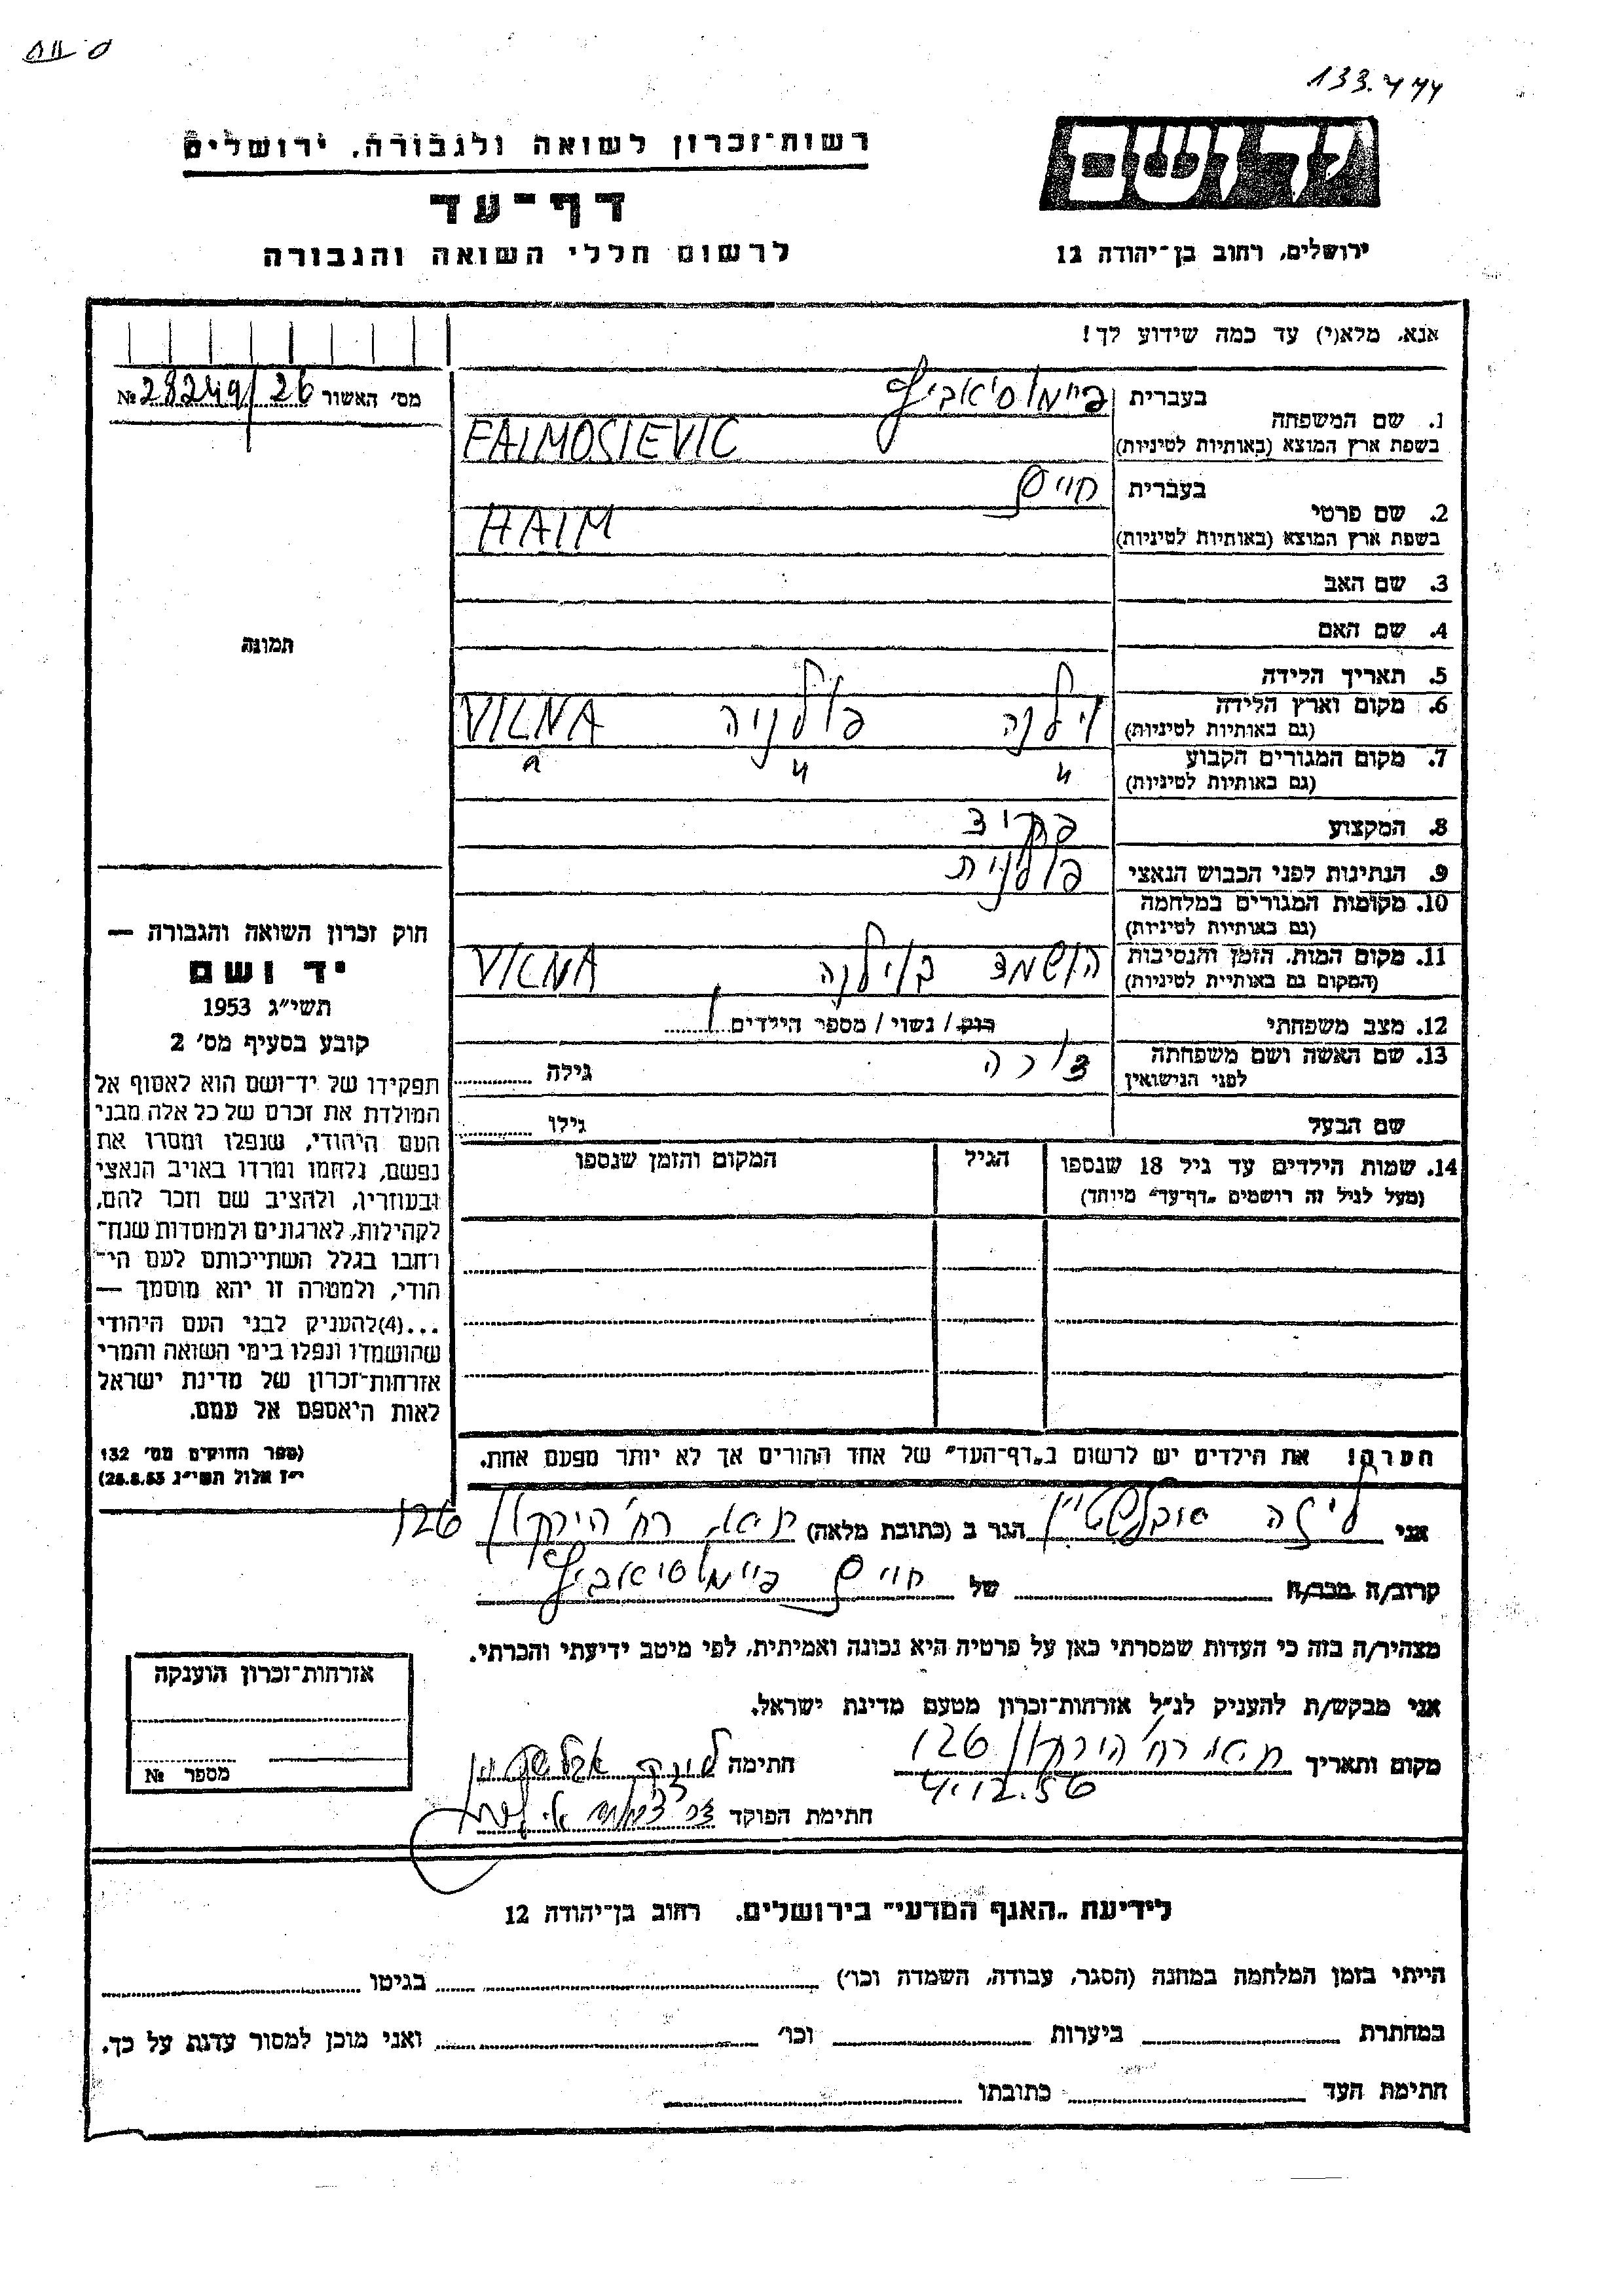 133.444
רשות־זכרון לשואה ולגבורה, ירושלים
יד ושם
דף־עד
לרשום חללי השואה והגבורה
ירושלים, רחוב בן־יהודה 12
אנא, מלא(י) עד כמה שידוע לך!
מס' האשור № 28249/26
1. שם המשפחה
בעברית פיימוסיאביץ
בשפת ארץ המוצא (באותיות לטיניות) FAIMOSIEVIC
2. שם פרטי
בעברית חיים
בשפת ארץ המוצא (באותיות לטיניות) HAIM
3. שם האב
4. שם האם
תמונה
5. תאריך הלידה
6. מקום וארץ הלידה (גם באותיות לטיניות) וילנה פולניה VILNA
7. מקום המגורים הקבוע (גם באותיות לטיניות) " " "
8. המקצוע
9. הנתינות לפני הכבוש הנאצי פולנית
10. מקומות המגורים במלחמה (גם באותיות לטיניות)
11. מקום המות, הזמן והנסיבות (המקום גם באותיות לטיניות) הושמד בוילנה VILNA
12. מצב משפחתי רוק / נשוי / מספר הילדים 1
13. שם האשה ושם משפחתה לפני הנישואין גילה
שם הבעל גילו
14. שמות הילדים עד גיל 18 שנספו הגיל המקום והזמן שנספו
(מעל לגיל זה רושמים „דף־עד" מיוחד)
חוק זכרון השואה והגבורה —
יד ושם
תשי"ג 1953
קובע בסעיף מס' 2
תפקידו של יד־ושם הוא לאסוף אל
המולדת את זכרם של כל אלה מבני
העם היהודי, שנפלו ומסרו את
נפשם, נלחמו ומרדו באויב הנאצי
ובעוזריו, ולהציב שם וזכר להם,
לקהילות, לארגונים ולמוסדות שנח־
רחבו בגלל השתייכותם לעם הי־
הודי, ולמטרה זו יהא מוסמך —
...(4) להעניק לבני העם היהודי
שהושמדו ונפלו בימי השואה והמרי
אזרחות־זכרון של מדינת ישראל
לאות היאספם אל עמם.
(ספר החוקים מס' 132
י"ז אלול תשי"ג 28.8.53)
הערה! את הילדים יש לרשום ב„דף־העד" של אחד ההורים אך לא יותר מפעם אחת.
אני ליזה הגר ב (כתובת מלאה) ת"א, רח' הירקון 126
קרוב/ה מכר/ה של חיים פיימוסיאביץ
מצהיר/ה בזה כי העדות שמסרתי כאן על פרטיה היא נכונה ואמיתית, לפי מיטב ידיעתי והכרתי.
אני מבקש/ת להעניק לנ"ל אזרחות־זכרון מטעם מדינת ישראל.
מקום ותאריך ת"א רח' הירקון 126 חתימה
4.12.56
חתימת הפוקד
אזרחות־זכרון הוענקה
מספר №
לידיעת „האגף המדעי" בירושלים, רחוב בן־יהודה 12
הייתי בזמן המלחמה במחנה (הסגר, עבודה, השמדה וכו') בגיטו
במחתרת ביערות וכו' ואני מוכן למסור עדות על כך.
חתימת העד כתובתו